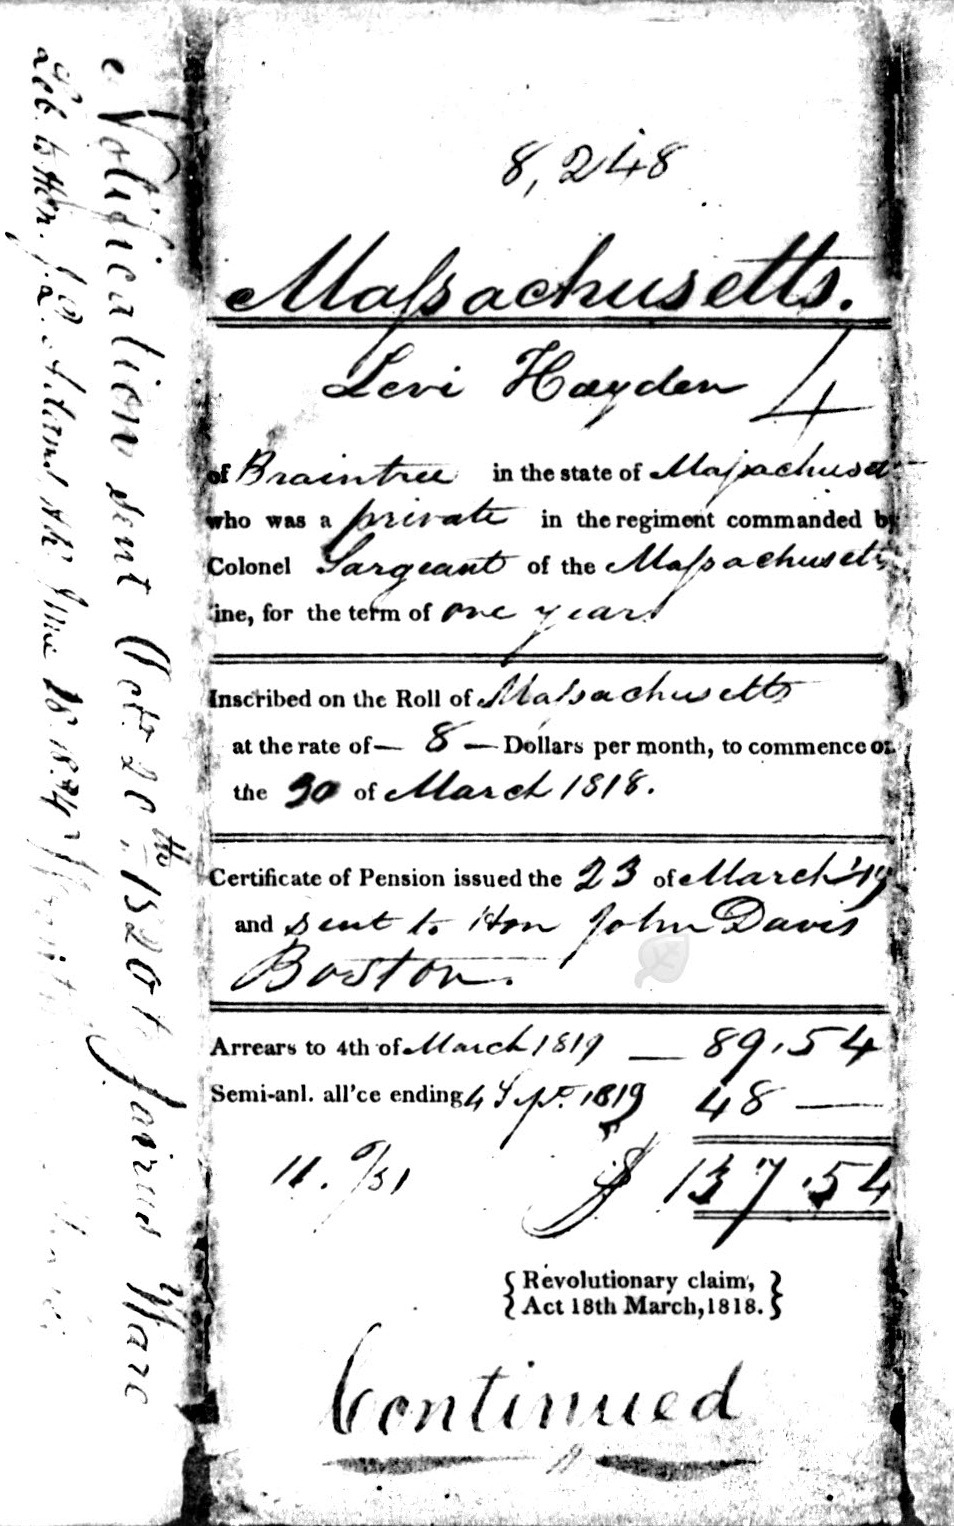 8,248
Massachusetts.
Levi Hayden 4
of Braintree in the state of Massachuset
who was a private in the regiment commanded by
Colonel Sargeant of the Massachusetts
line, for the term of one year
Inscribed on the Roll of Massachusetts
at the rate of — 8 — Dollars per month, to commence on
the 30 of March 1818.
Certificate of Pension issued the 23 of March '19
and sent to Hon John Davis
Boston.
Arrears to 4th of March 1819 — 89.54
Semi-anl. all'ce ending 4 Sept. 1819 48 —
$ 137.54
Revolutionary claim,
Act 18th March, 1818.
Continued
Notification sent Oct 20th 1820 to Jairus Ware
Let. to Hon. June 18 1834